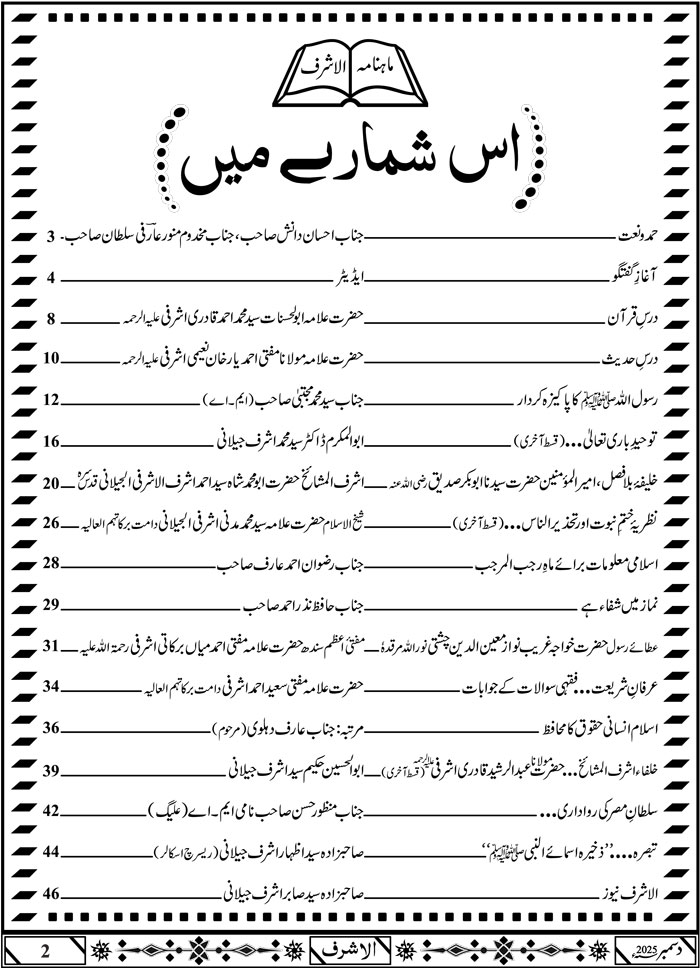 ماہنامہ الاشرف
اس شمارے میں
حمد و نعت جناب احسان دانش صاحب، جناب مخدوم منور عارفی سلطان صاحب۔ 3
آغازِ گفتگو ایڈیٹر 4
درسِ قرآن حضرت علامہ ابوالحسنات سید محمد احمد قادری اشرفی علیہ الرحمہ 8
درسِ حدیث حضرت علامہ مولانا مفتی احمد یار خان نعیمی اشرفی علیہ الرحمہ 10
رسول اللہ ﷺ کا پاکیزہ کردار جناب سید محمد مجتبیٰ صاحب (ایم۔اے) 12
توحیدِ باری تعالیٰ... (قسط آخری) ابوالمکرم ڈاکٹر سید محمد اشرف جیلانی 16
خلیفۂ بلافصل، امیرالمؤمنین حضرت سیدنا ابوبکر صدیق رضی اللہ عنہ اشرف المشائخ حضرت ابو محمد شاہ سید احمد اشرف الاشرفی الجیلانی قدس سرہ 20
نظریۂ ختمِ نبوت اور تحذیر الناس... (قسط آخری) شیخ الاسلام حضرت علامہ سید محمد مدنی اشرفی الجیلانی دامت برکاتہم العالیہ 26
اسلامی معلومات برائے ماہِ رجب المرجب جناب رضوان احمد عارف صاحب 28
نماز میں شفاء ہے جناب حافظ نذر احمد صاحب 29
عطائے رسول حضرت خواجہ غریب نواز معین الدین چشتی نور اللہ مرقدہٗ مفتیٔ اعظم سندھ حضرت علامہ مفتی احمد میاں برکاتی اشرفی رحمۃ اللہ علیہ 31
عرفانِ شریعت... فقہی سوالات کے جوابات حضرت علامہ مفتی سعید احمد اشرفی دامت برکاتہم العالیہ 34
اسلام انسانی حقوق کا محافظ مرتبہ: جناب عارف دہلوی (مرحوم) 36
خلفاء اشرف المشائخ... حضرت مولانا عبدالرشید قادری اشرفی علیہ الرحمہ (قسط آخری) ابوالحسین حکیم سید اشرف جیلانی 39
سلطانِ مصر کی رواداری... جناب منظور حسن صاحب نامی ایم۔اے (علیگ) 42
تبصرہ.... ”ذخیرہ اسمائے النبی ﷺ“ صاحبزادہ سید اظہار اشرف جیلانی (ریسرچ اسکالر) 44
الاشرف نیوز صاحبزادہ سید صابر اشرف جیلانی 46
دسمبر 2025ء الاشرف 2